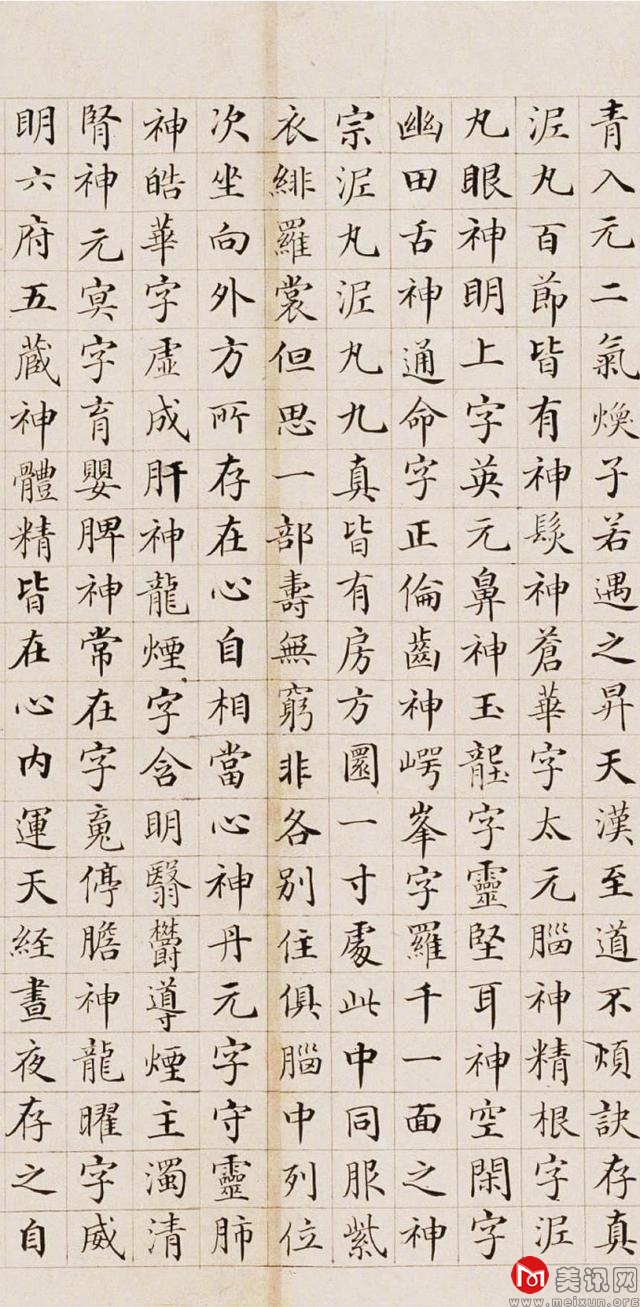 青入元二氣煥子若遇之昇天漢至道不煩訣存真
泥丸百節皆有神髮神蒼華字太元腦神精根字泥
丸眼神明上字英元鼻神玉壟字靈堅耳神空閑字
幽田舌神通命字正倫齒神崿峯字羅千一面之神
宗泥丸泥丸九真皆有房方圓一寸處此中同服紫
衣緋羅裳但思一部壽無窮非各別住俱腦中列位
次坐向外方所存在心自相當心神丹元字守靈肺
神皓華字虛成肝神龍煙字含明翳鬱導煙主濁清
腎神元冥字育嬰脾神常在字魂停膽神龍曜字威
明六府五藏神體精皆在心內運天經晝夜存之自
美讯网
www.meixun.org